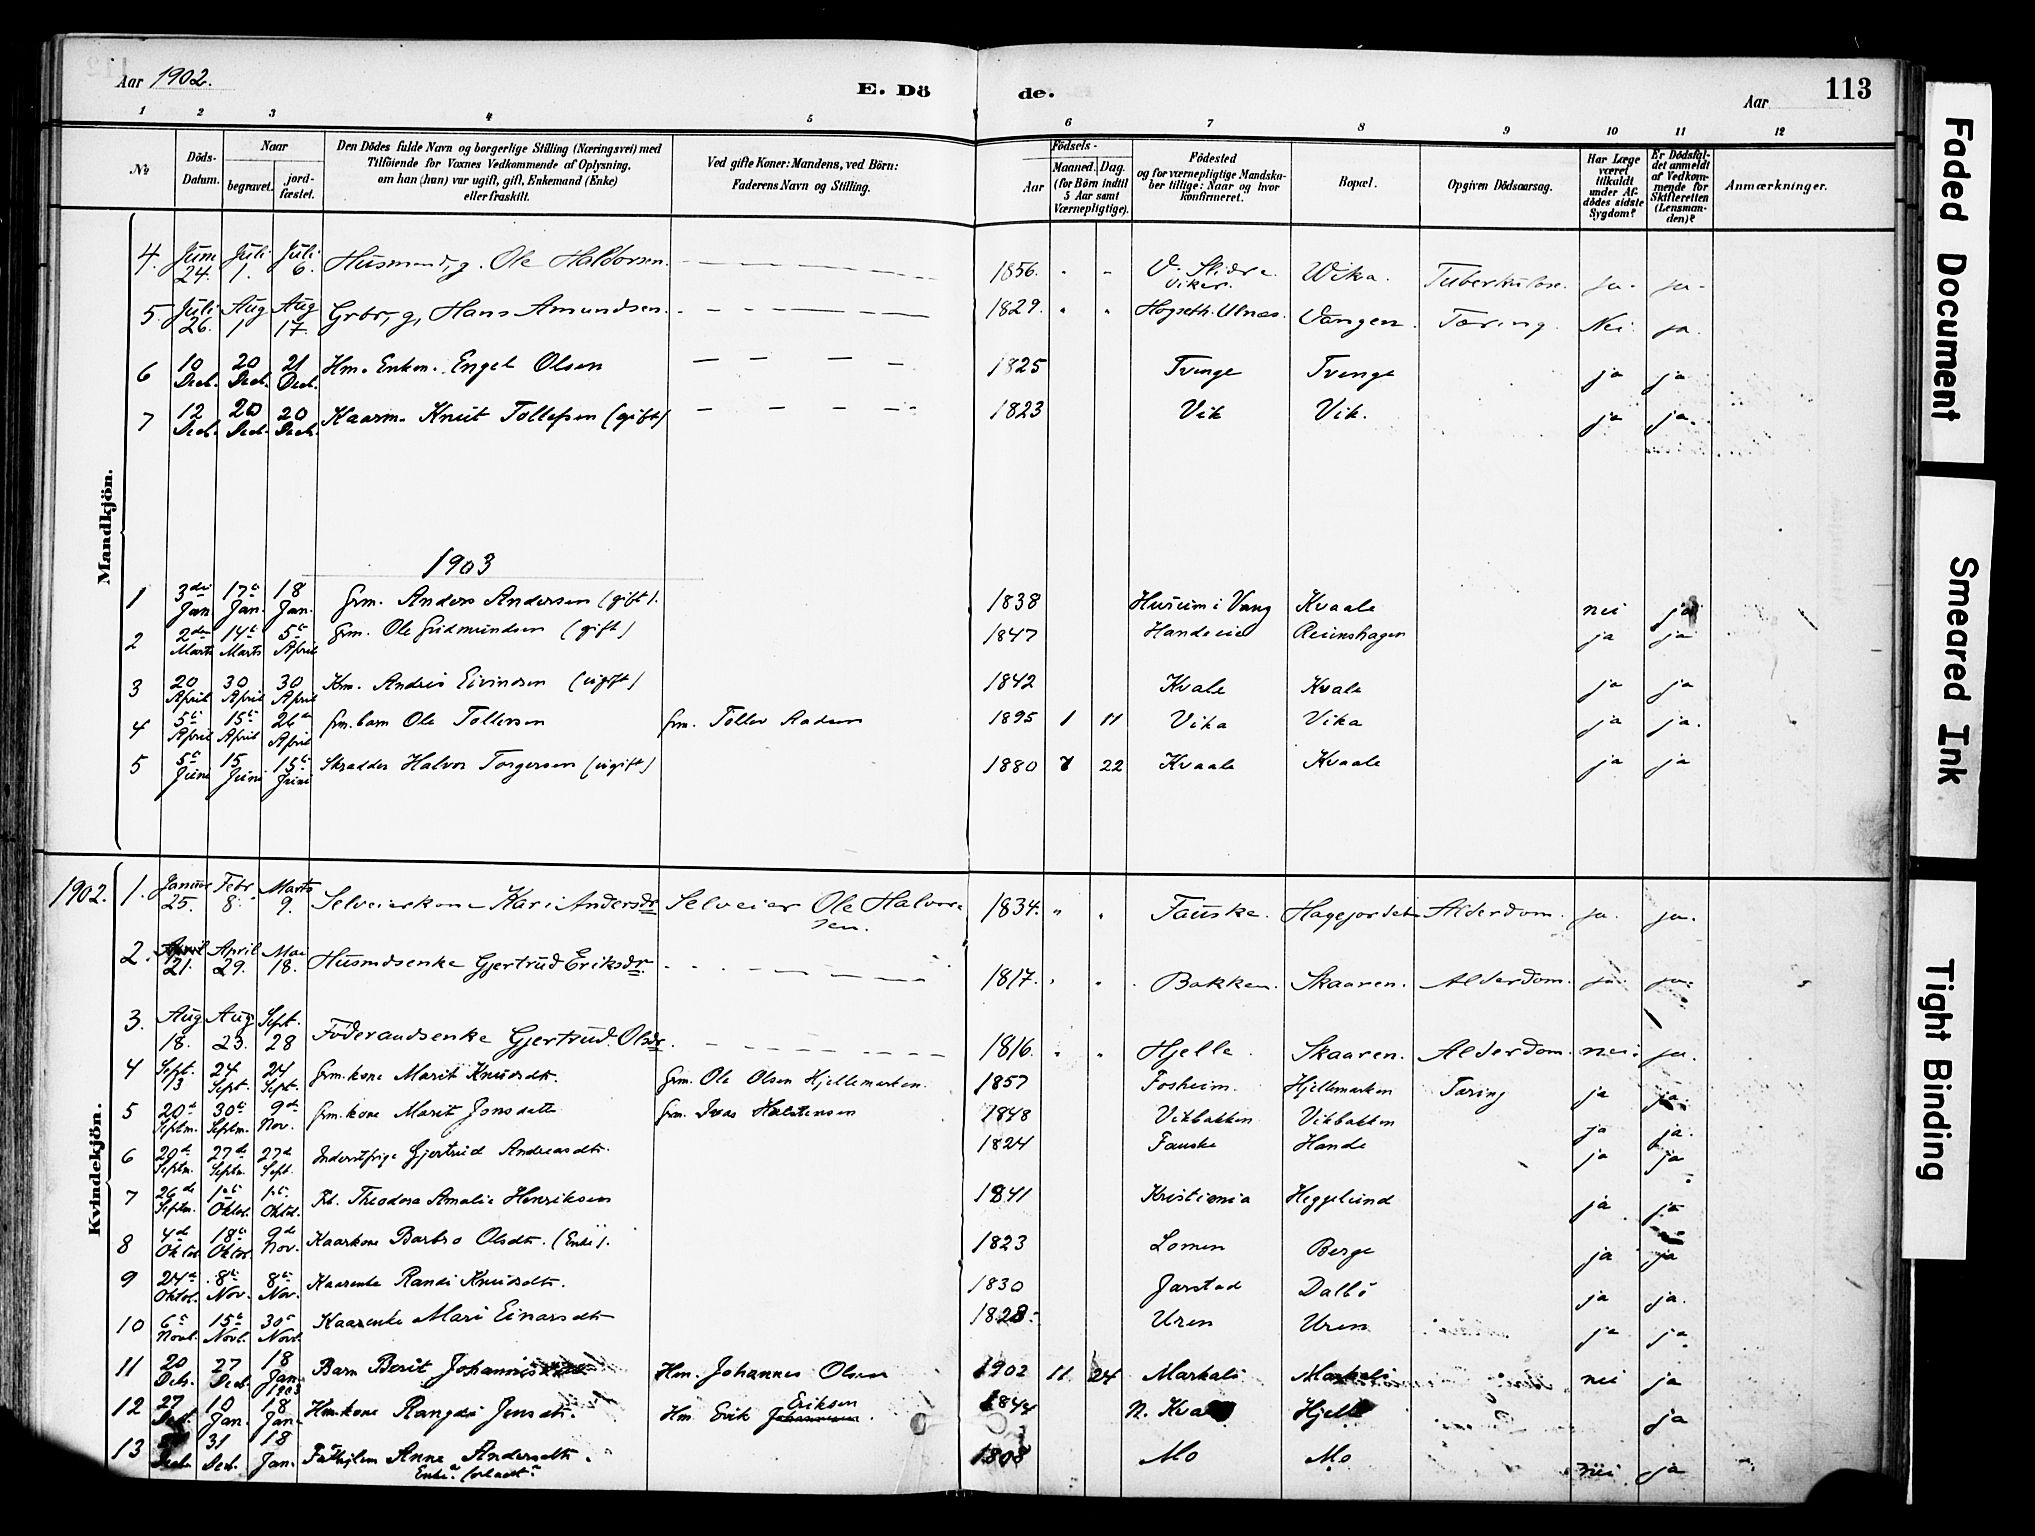 Aar 1902. E. Dö de. Aar 113
1 2 3 4 5 6 7 8 9 10 11 12
№ Döds-Datum. Naar begravet. jord-fæstet. Den Dödes fulde Navn og borgerlige Stilling (Næringsvei) med Tilföiende for Voxnes Vedkommende af Oplysning, om han (hun) var ugift, gift, Enkemand (Enke) eller fraskilt. Ved gifte Koner: Mandens, ved Börn: Faderens Navn og Stilling. Födsels- Aar Maaned. Dag. (for Börn indtil 5 Aar samt Værnepligtige). Födested og for værnepligtige Mandskaber tillige: Naar og hvor konfirmeret. Bopæl. Opgiven Dödsaarsag. Har Læge været tilkaldt under Afdödes sidste Sygdom? Er Dödsfaldet anmeldt af Vedkommende for Skifteretten (Lensmanden)? Anmærkninger.
Mandkjön.
4. Juni 24. Juli 1. Juli 6. Husmand, g. Ole Haldorsen. 1856. V. Slidre Viker. Wika. Tuberkulose. ja. ja.
5. Juli 26. Aug 1 Aug 17. Grbr, g, Hans Amundsen. 1829. Hogseth. Ulnæs. Vangen. Tæring. Nei ja.
6 10 Decb. 20 Decb. 21 Decb. Hm. Enkem. Engel Olsen 1825 Tvenge Tvenge ja ja
7 12 Decb. 20 Decb. 20 Decb. Kaarm. Knut Tollefsen (gift) 1823 Vik Vik. ja ja.
1903
1 3die Jan. 17e Jan. 18 Jan. Grm. Anders Andersen (gift). 1838 Husum i Vang Kvaale nei ja
2 2den Marts 14e Marts 5te April Grm. Ole Gudmundsen (gift) 1847 Hande eie Reienshagen ja ja
3 20 April 30 April 30 April Km. Andris Eivindsen (ugift) 1842 Kvale Kvale ja ja
4 5te April 15te April 26de April Grm. barn Ole Tollersen Grm. Toller Aadsen 1895 1 11 Vika Vika ja ja.
5 5te Juni 15 Juni 15te Juni Skrædder Halvor Torgersen (ugift) 1880 7 22 Kvaale Kvaale ja ja
Kvindekjön.
1902. 1. Januar 25. Febr 8. Marts 9. Selveierkone Kari Andersdr Selveier Ole Halvorsen. 1834. Fauske. Hagejordet Alderdom. ja. ja.
2. April 21. April 29. Mai 18. Husmdsenke Gjertrud Eriksdr. 1817. Bakken. Skaaren. Alderdom. ja. ja.
3. Aug 18. Aug 23. Sept. 28 Föderaadsenke Gjertrud. Olsdr. 1816. Hjelle. Skaaren. Alderdom. nei. ja.
4 Sept. 13 24 Sept. 24 Sept. Grm.kone Marit Knudsdtr. Grm. Ole Olsen Hjellemarken. 1857 Fosheim. Hjellemarken Tæring ja ja.
5 20de Septm. 30te Septm. 9de Nov. Grm.kone Marit Jonsdatter Grm. Ivar Halstensen 1848 Vikbakken Vikbakken ja ja.
6 20de Septm. 27de Septm. 27de Sept. Gjertrud Andreasdtr. 1824 Fauske Hande ja ja
7 26de Septm. 1te Oktob. 1te Oktob. Frk. Theodora Amalie Henriksen 1841 Kristiania Heggelund ja ja
8 4de Oktob. 18te Oktbr. 9de Nov. Kaarkone Barbro Olsdtr. (Enke). 1823 Lomen Berge ja ja
9 24de Oktob. 8te Nov. 8te Nov. Kaarenke Randi Knudsdtr. 1830 Jarstad Dalbö ja ja.
10 6te Novb. 15te Novb. 30te Novb. Kaarenke Mari Einarsdtr 1828. Uren Uren ja. ja.
11 20 Decb. 27 Decb. 18 Jan. 1903 Barn Berit Johannis Hm. Johannes Olsen 1902 11 24 Markali Markali nei ja
12 27 Dcb. 10 Jan. 18 Jan. Hm.kone Rangdi Jonsdtr. Hm. Erik Eriksen 1844 N. Kva Hjelle ja
13 Decb. 31 Decb. 18 Jan. Anne Andersdtr. Enke 1808 Mo Mo nei. ja
Faded Document
Smeared Ink
Tight Binding